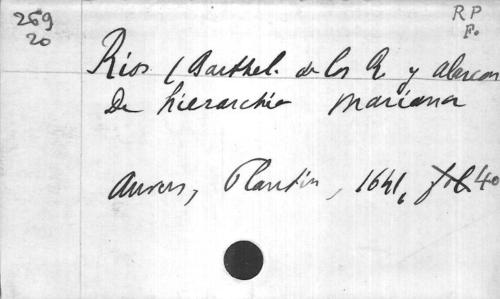 269
20
R P
F.
Rios (Barthel. de los R y Alarcon
De hierarchia mariana
Anvers, Plantin, 1641, fol 4o